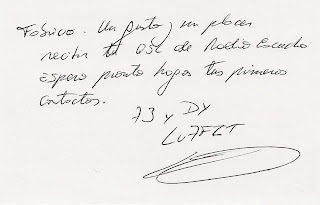 Fabricio. Un gusto, un placer
recibir tu QSL de Radio Escucha
Espero pronto hagas tus primeros
contactos.
73 y DX
LU7FLT